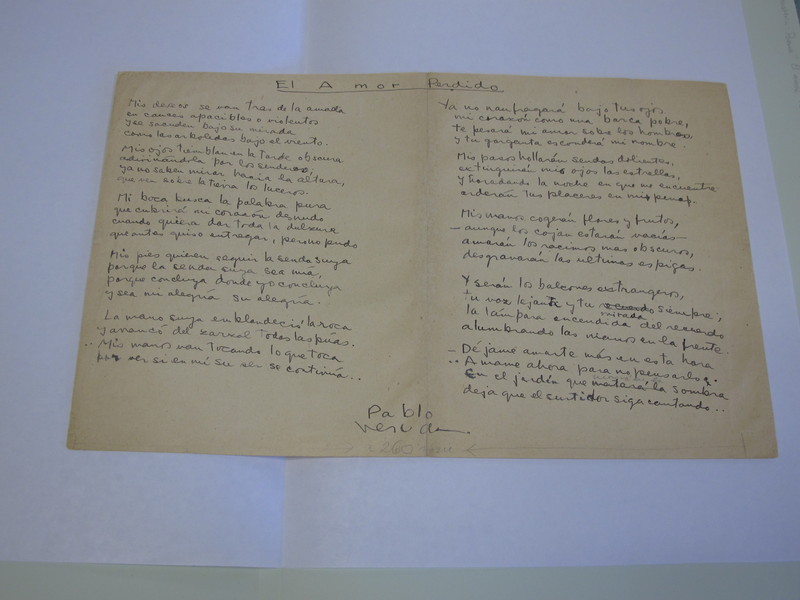 El Amor Perdido
Mis deseos se van tras de la amada
en cauces apacibles o violentos
y se sacuden bajo su mirada
como las arboledas bajo el viento.
Mis ojos tiemblan en la tarde obscura
adivinándola por los senderos,
ya no saben mirar hacia la altura,
que ven sobre la tierra los luceros.
Mi boca busca la palabra pura
que cubrirá mi corazón desnudo
cuando quiera dar toda la dulzura
que antes quiso entregar, pero no pudo
Mis pies quieren seguir la senda suya
porque la senda suya sea mía,
porque concluya donde yo concluya
y sea mi alegría su alegría.
La mano suya emblandeció la roca
y arrancó del zarzal todas las púas.
Mis manos van tocando lo que toca
por ver si en mí su ser se continúa..
Ya no naufragará bajo tus ojos
mi corazón como una barca pobre,
te pesará mi amor sobre los hombros
y tu garganta esconderá mi nombre.
Mis pasos hollarán sendas dolientes,
extinguirán mis ojos las estrellas,
y horadando la noche en que me encuentre
arderán tus placeres en mis penas.
Mis manos cogerán flores y frutos,
— aunque los cojan estarán vacías —
amarán los racimos mas obscuros,
desgranarán las ultimas espigas.
Y serán los balcones extrangeros,
tu voz lejana y tu mirada siempre,
la lámpara encendida del recuerdo
alumbrando las manos en la frente.
— Déjame amarte más en esta hora
.. Amame ahora para no pensarlo.
En el jardín que matará la sombra
deja que el surtidor siga cantando..
Pablo
Neruda
260 mm